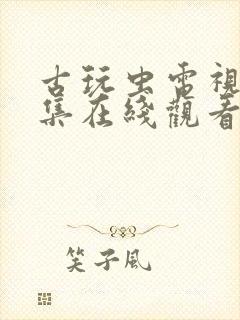 古玩虫電視
集在綫觀看
笑子風